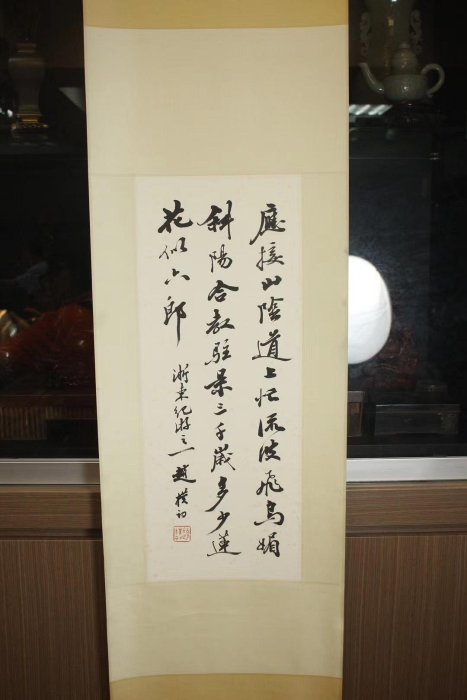 應接山陰道上忙流波飛鳥媚
斜陽合教駐景三千歲多少蓮
花似六郎
浙東紀游之一 趙樸初